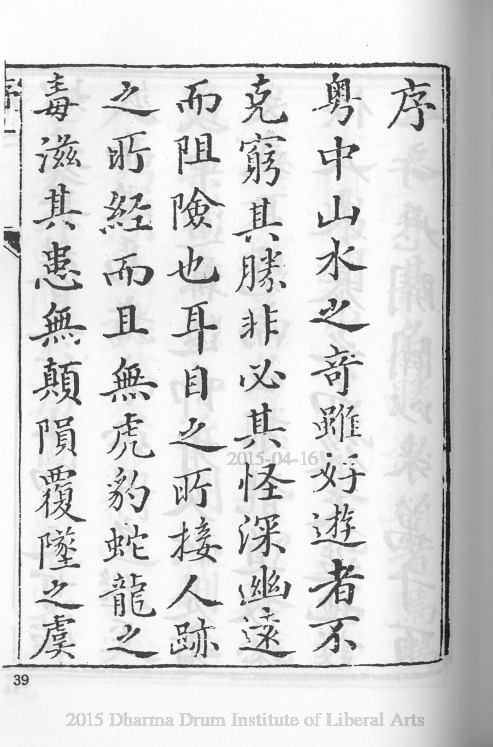 序
粤中山水之竒雖好遊者不
克窮其勝非必其怪深幽遠
而阻險也耳目之所接人跡
之所経而且無虎豹蛇龍之
毒滋其患無顛隕覆墜之虞
2015-04-16
39
2015 Dharma Drum Institute of Liberal Arts